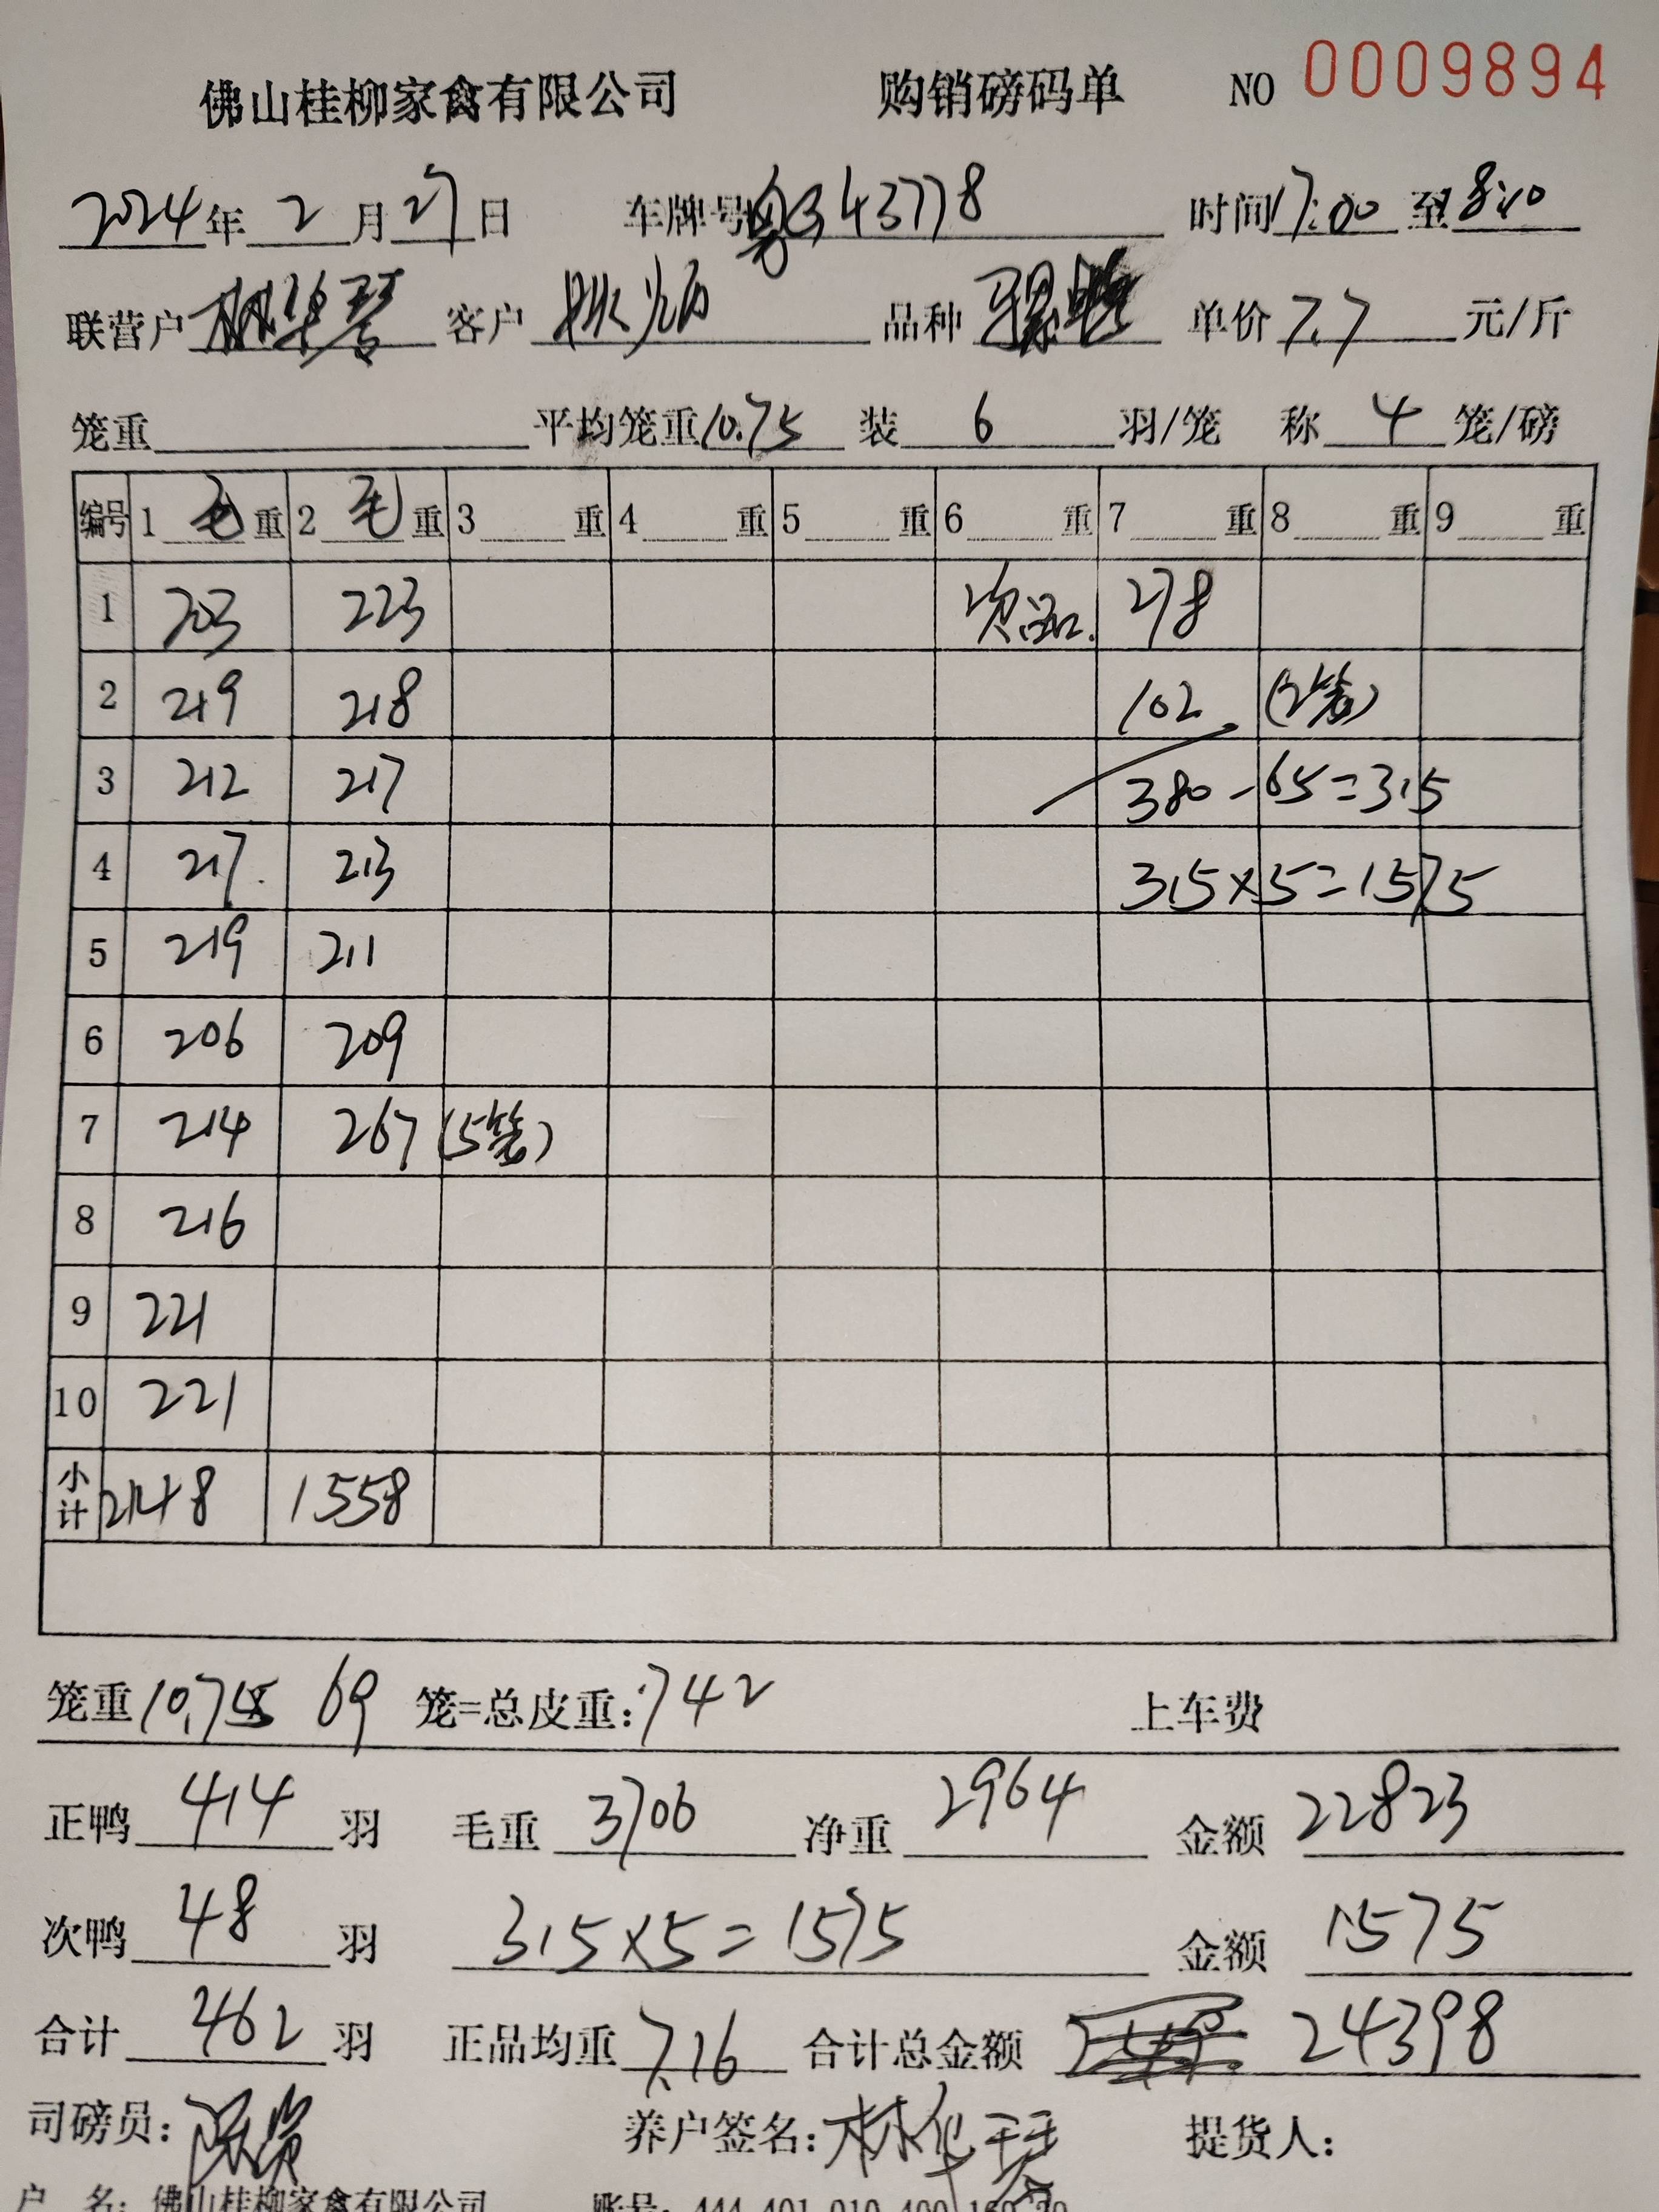 佛山桂柳家禽有限公司 购销磅码单 NO 0009894
2024年 2 月 27 日 车牌号 粤G 43778 时间 17:00 至 8:10
联营户 林华琴 客户 品种 单价 7.7 元/斤
笼重 平均笼重 10.75 装 6 羽/笼 称 4 笼/磅
编号 1 毛 重 2 毛 重 3 重 4 重 5 重 6 重 7 重 8 重 9 重
1 203 223 次品. 278
2 219 218 102 (2笼)
3 212 217 380-65=315
4 217. 213 315×5=1575
5 219 211
6 206 209
7 214 267 (5笼)
8 216
9 221
10 221
小计 2148 1558
笼重 10.75 69 笼=总皮重: 742 上车费
正鸭 414 羽 毛重 3706 净重 2964 金额 22823
次鸭 48 羽 315×5=1575 金额 1575
合计 462 羽 正品均重 7.16 合计总金额 24398
司磅员: 养户签名: 林华琴 提货人:
户 名: 佛山桂柳家禽有限公司 账号: